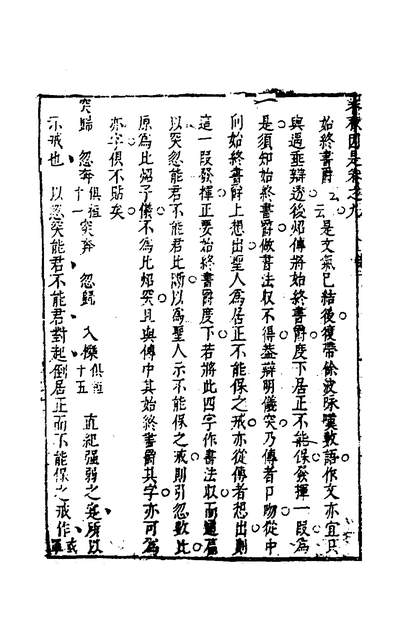 始終書爵云云是文氣已結後復帶餘波咏嘆數語作文亦宜只
與過垂辯透後炤傳將始終書爵度下居正不能保發揮一段為
是須知始終書爵做書法収不得葢辯明儀突乃傳者口吻從中
間始終書爵上想出聖人為居正不能保之戒亦從傳者想出則
這一段發揮正要始終書爵度下若將此四字作書法収而通篇
以突忽能君不能君比断以為聖人示不能保之戒則引忽數比
原為比炤子儀不為比炤突且與傳中其始終書爵其字亦可為
亦字俱不貼矣
突歸 忽奔俱桓十一 突奔 忽歸 入櫟俱桓十五 直紀强弱之定所以
示戒也 以忽突能君不能君對起倒居正而不能保之戒作或單